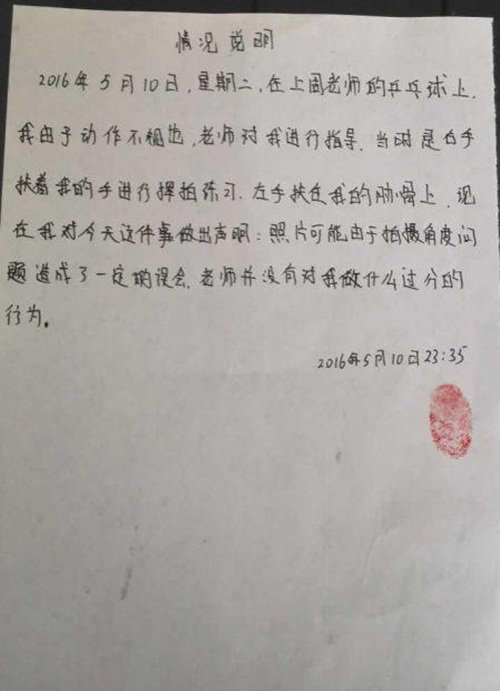 情况说明
2016年5月10日,星期二,在上周老师的乒乓球上,
我由于动作不规范,老师对我进行指导,当时是右手
扶着我的手进行挥拍练习,左手扶在我的肋骨上,现
在我对今天这件事做出声明:照片可能由于拍摄角度问
题造成了一定的误会,老师并没有对我做什么过分的
行为。
2016年5月10日23:35